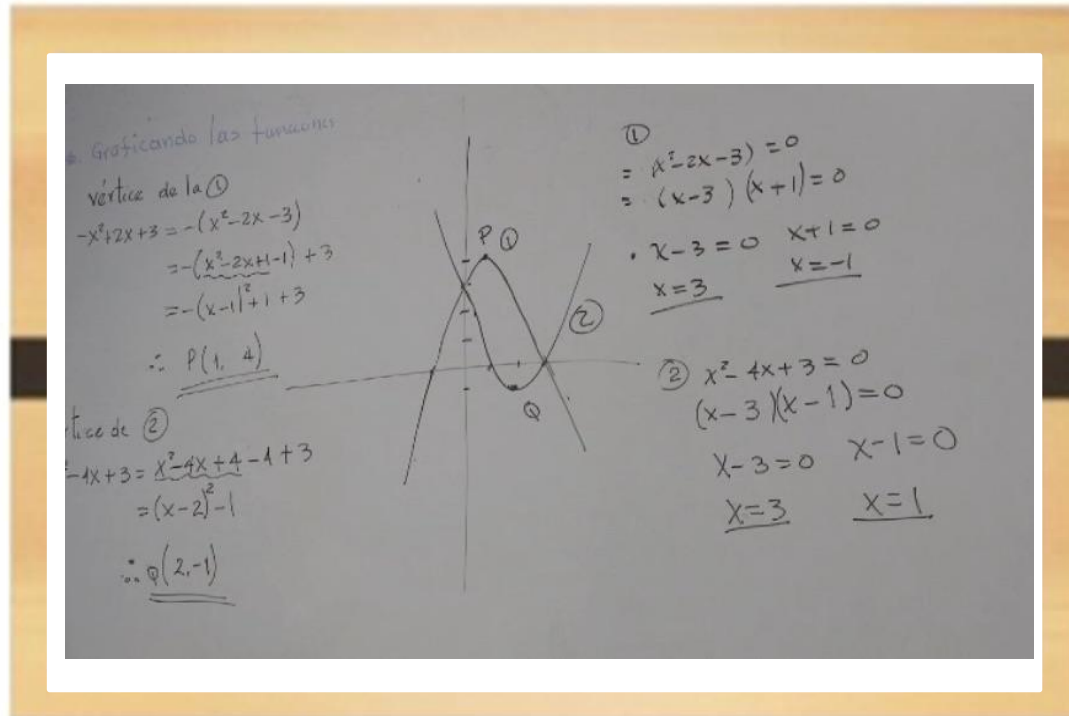 Graficando las funciones
vértice de la ①
-x²+2x+3 = -(x²-2x-3)
= -(x²-2x+1-1) + 3
= -(x-1)²+1+3
∴ P(1, 4)
tice de ②
-4x+3 = x²-4x+4-4+3
= (x-2)²-1
∴ Q(2,-1)
P ①
②
Q
①
= (x²-2x-3) = 0
= (x-3) (x+1) = 0
• x-3=0 x+1=0
x=3 x=-1
② x²-4x+3=0
(x-3)(x-1)=0
x-3=0 x-1=0
x=3 x=1